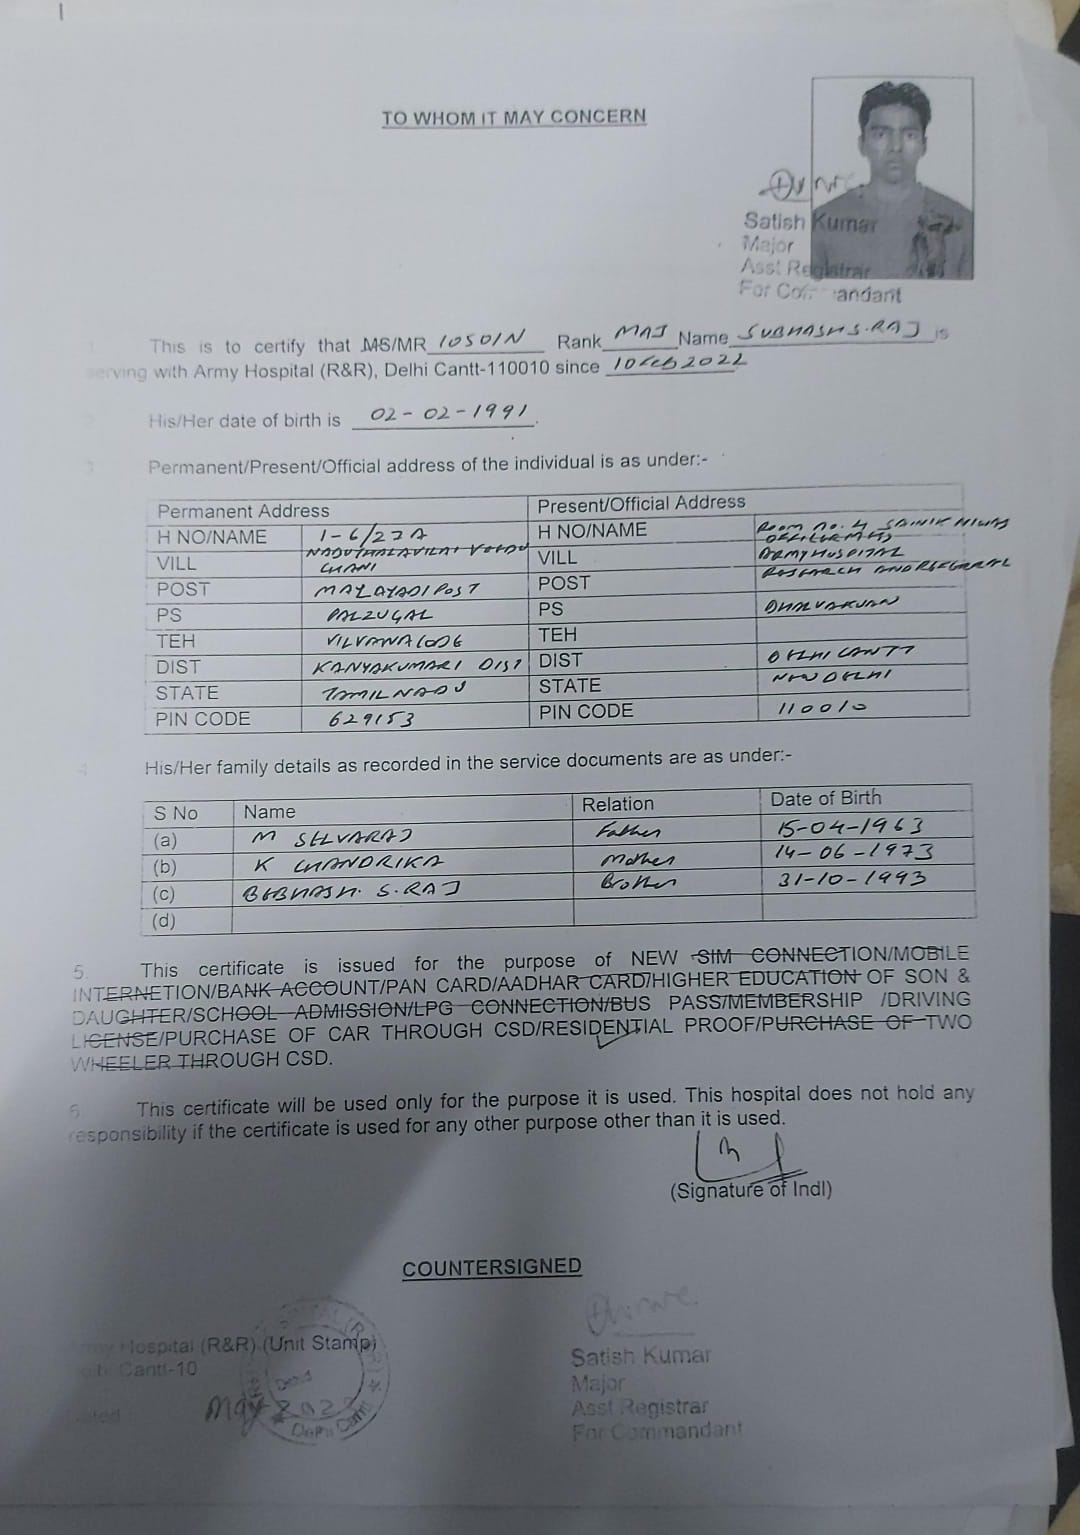 TO WHOM IT MAY CONCERN
Satish Kumar
Major
Asst Registrar
For Commandant
1 This is to certify that MS/MR 10501N Rank MAJ Name SUBHASH S.RAJ is
serving with Army Hospital (R&R), Delhi Cantt-110010 since 10 Feb 2022
2 His/Her date of birth is 02-02-1991.
3 Permanent/Present/Official address of the individual is as under:-
Permanent Address Present/Official Address
H NO/NAME 1-6/27A H NO/NAME Room no. 4 SAINIK NIWAS
OFFICER MESS
VILL NADUTHALAVILAI VILL ARMY HOSPITAL
CHANI
POST MALAYADI POST POST RESEARCH AND REFERRAL
PS PALZUGAL PS DHALVAKUAN
TEH VILVANACODE TEH
DIST KANYAKUMARI DIST DIST DELHI CANTT
STATE TAMIL NADU STATE NEW DELHI
PIN CODE 629153 PIN CODE 110010
4 His/Her family details as recorded in the service documents are as under:-
S No Name Relation Date of Birth
(a) M SELVARAJ Father 15-04-1963
(b) K CHANDRIKA Mother 14-06-1973
(c) BEBHASH. S.RAJ Brother 31-10-1993
(d)
5. This certificate is issued for the purpose of NEW SIM CONNECTION/MOBILE
INTERNETION/BANK ACCOUNT/PAN CARD/AADHAR CARD/HIGHER EDUCATION OF SON &
DAUGHTER/SCHOOL ADMISSION/LPG CONNECTION/BUS PASS/MEMBERSHIP /DRIVING
LICENSE/PURCHASE OF CAR THROUGH CSD/RESIDENTIAL PROOF/PURCHASE OF TWO
WHEELER THROUGH CSD.
6 This certificate will be used only for the purpose it is used. This hospital does not hold any
responsibility if the certificate is used for any other purpose other than it is used.
(Signature of Indl)
COUNTERSIGNED
Army Hospital (R&R) (Unit Stamp)
Delhi Cantt-10
Dated May
Satish Kumar
Major
Asst Registrar
For Commandant